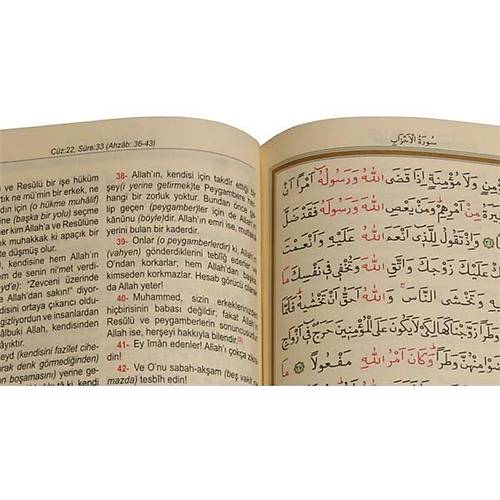 Cüz:22, Sûre:33 (Ahzâb: 36-43)
ve Resûlü bir işe hüküm
tık ne mü'min bir erkek, ne
dın için (o hükme muhâlif)
(başka bir yolu) seçme
er kim Allah'a ve Resûlüne
muhakkak ki apaçık bir
düşmüş olur.
hem Allah'ın
em de senin ni'met verdi-
yd'e): "Zevceni üzerinde
Allah'dan sakın!" diyor-
disini ortaya çıkarıcı oldu-
gizliyordun ve insanlardan
âlbuki Allah, kendisinden
eyd (kendisini fazîlet cihe-
arak denk görmediğinden)
on boşamasını) yerine ge-
38- Allah'ın, kendisi için takdîr ettiği bir
şey(i yerine getirmek)te Peygambere her-
hangi bir zorluk yoktur. Bundan önce ge-
lip geçen (peygamber)ler için de Allah'ın
kânûnu (böyle)dir. Allah'ın emri ise, mutlaka
yerini bulan bir kaderdir.
39- Onlar (o peygamberlerdir) ki, Allah'ın
(vahyen) gönderdiklerini tebliğ ederler ve
O'ndan korkarlar; hem Allah'dan başka
kimseden korkmazlar. Hesab görücü olarak
da Allah yeter!
40- Muhammed, sizin erkeklerinizden
hiçbirisinin babası değildir; fakat Allah'ın
Resûlü ve peygamberlerin sonuncusudur.
Allah ise, herşeyi hakkıyla bilendir.
41- Ey îmân edenler! Allah'ı çokça zikre-
din!
42- Ve O'nu sabah-akşam (beş vakit na-
mazda) tesbîh edin!
سُورَةُ الْاَحْزَابِ
وَلَا مُؤْمِنَةٍ اِذَا قَضَى اللّٰهُ وَرَسُولُهُٓ اَمْرًا اَنْ
مِنْ اَمْرِهِمْ وَمَنْ يَعْصِ اللّٰهَ وَرَسُولَهُ فَقَدْ ضَلَّ
وَاِذْ تَقُولُ لِلَّذٓي اَنْعَمَ اللّٰهُ عَلَيْهِ وَاَنْعَمْتَ
عَلَيْكَ زَوْجَكَ وَاتَّقِ اللّٰهَ وَتُخْفٖي فٖي نَفْسِكَ مَا
وَتَخْشَى النَّاسَ وَاللّٰهُ اَحَقُّ اَنْ تَخْشٰيهُ فَلَمَّا
وَطَرًا زَوَّجْنَاكَهَا لِكَيْ لَا يَكُونَ عَلَى الْمُؤْمِنٖينَ حَرَجٌ فٖٓي اَزْوَاجِ
مِنْهُنَّ وَطَرًا وَكَانَ اَمْرُ اللّٰهِ مَفْعُولًا مَا